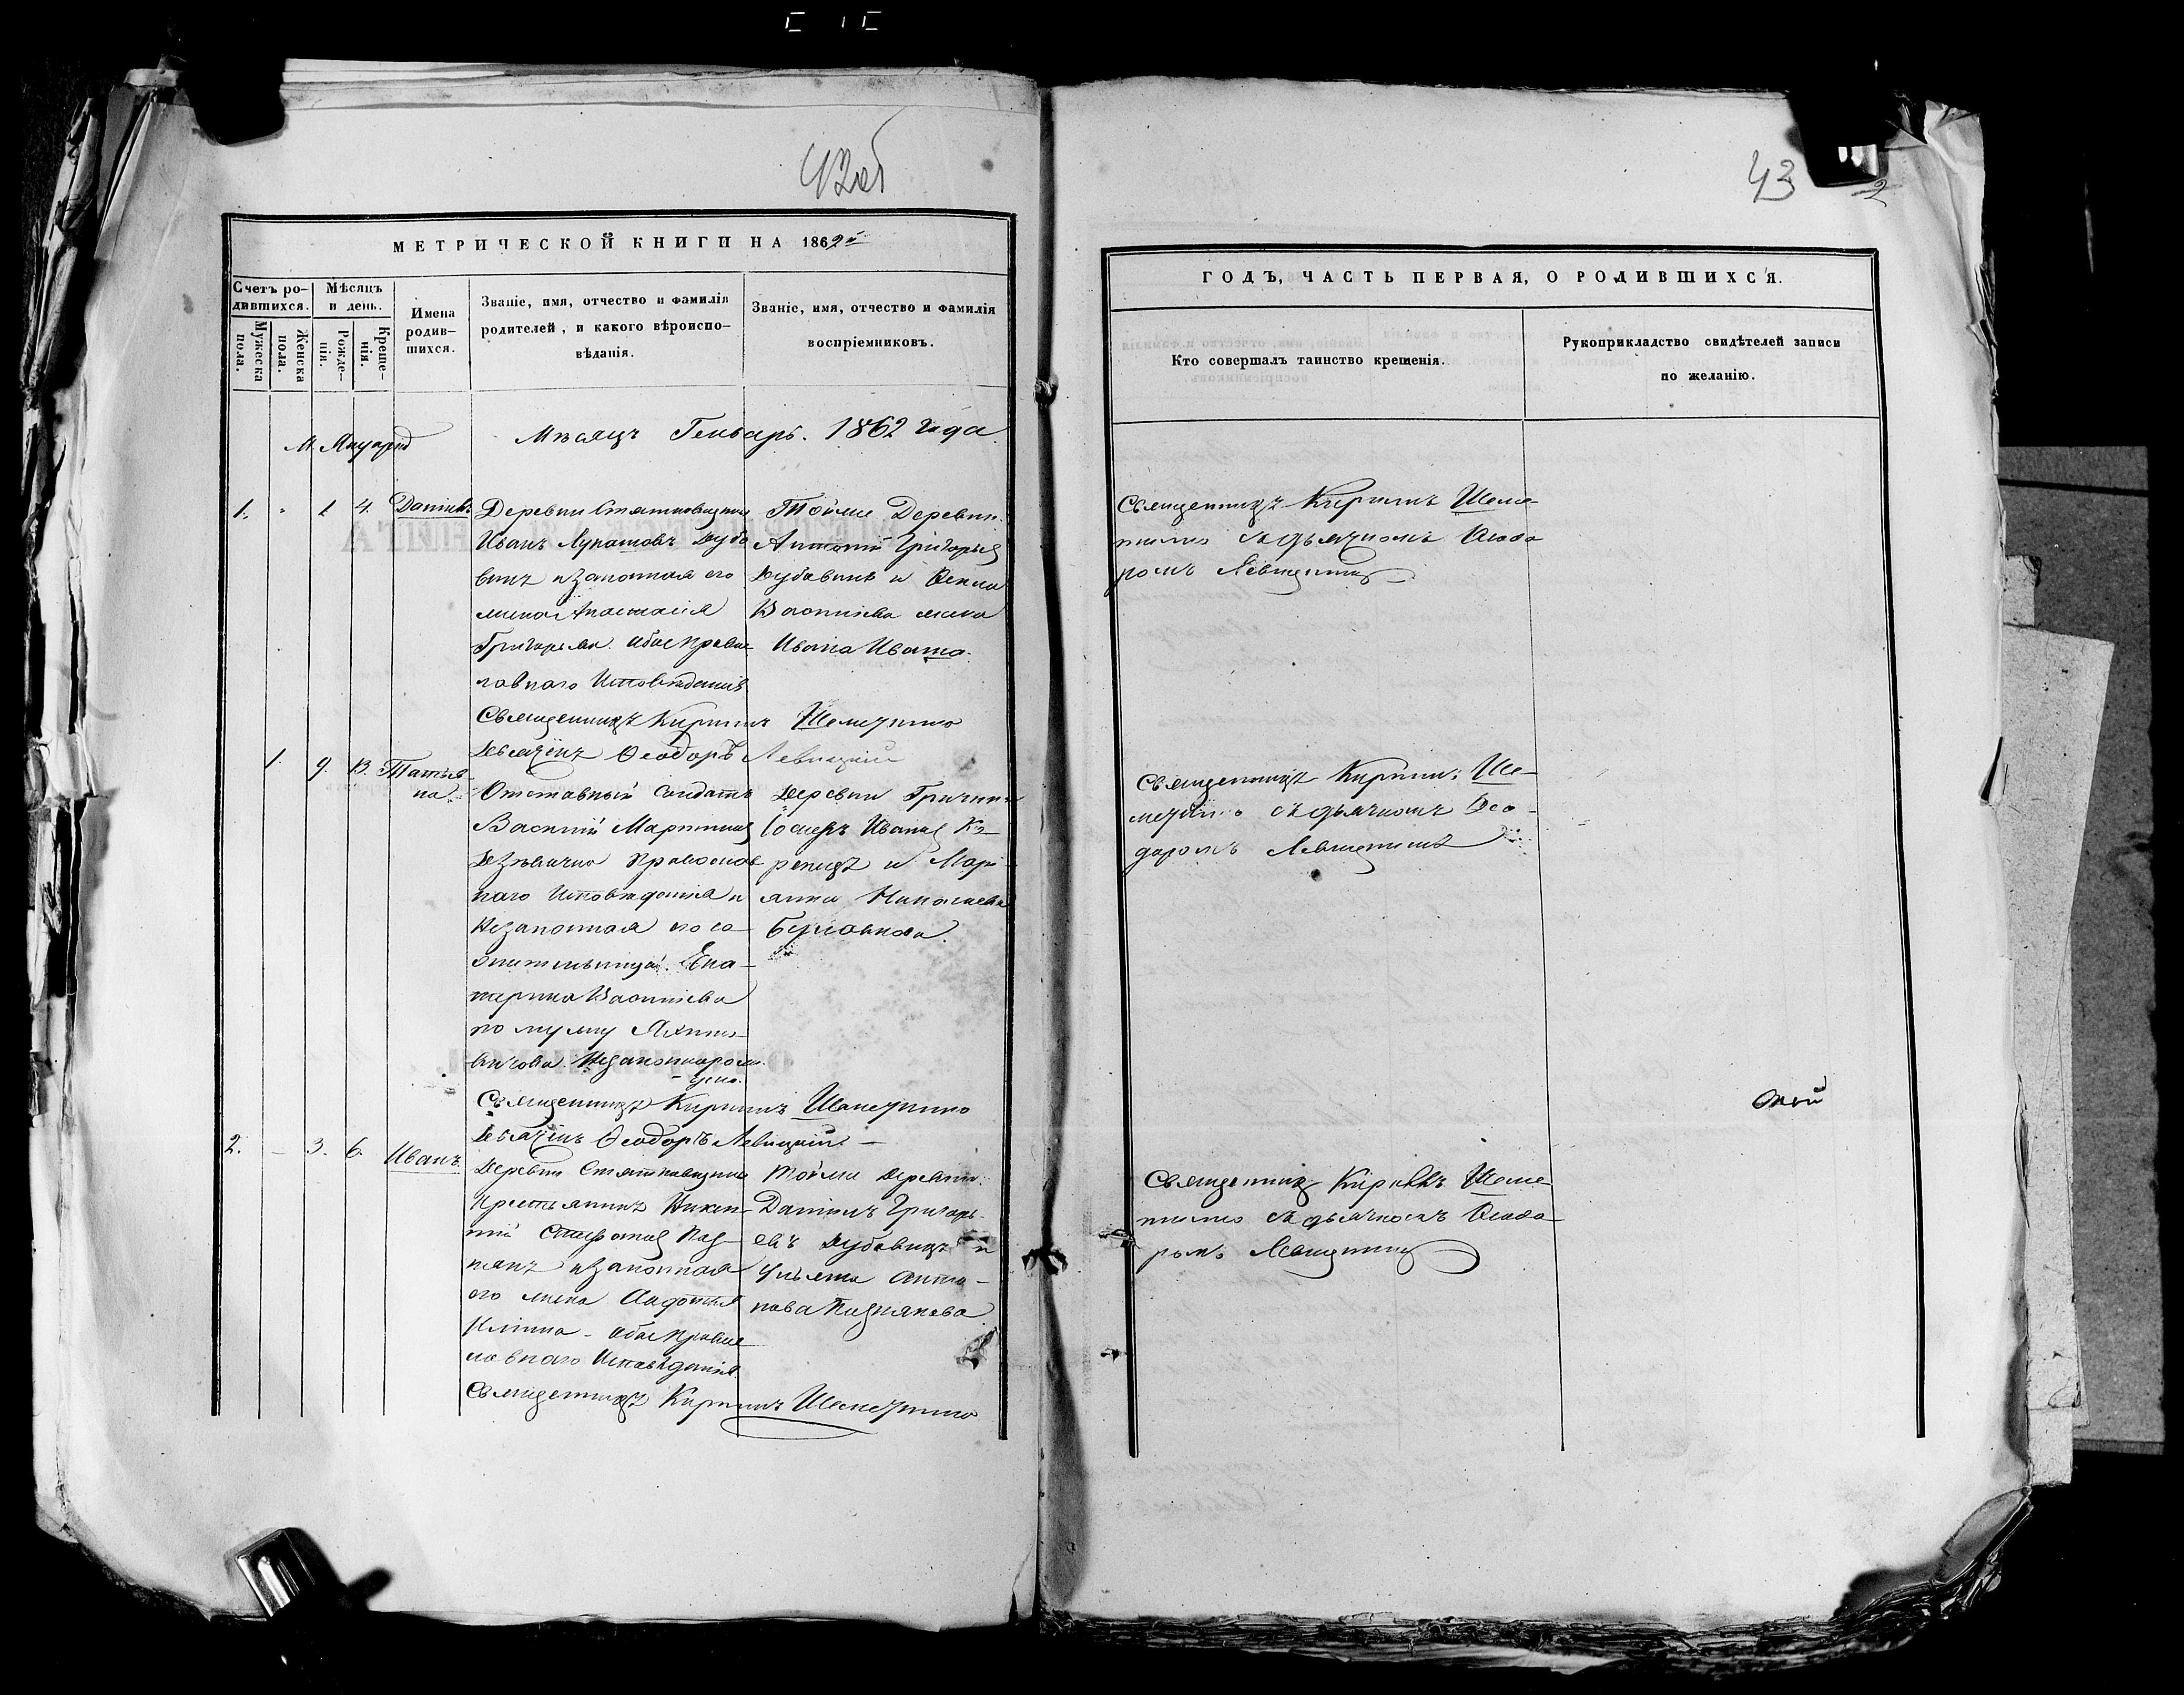 42об
МЕТРИЧЕСКОЙ КНИГИ НА 1862й
Счетъ ро-
дившихся.
Мѣсяцъ
и день.
Мужеска
пола.
Женска
пола.
Рожде-
нія.
Креще-
нія.
Имена
родив-
шихся.
Званіе, имя, отчество и фамилія
родителей, и какого вѣроиспо-
вѣданія.
Званіе, имя, отчество и фамилія
воспріемниковъ.
М. Януарій
Мѣсяцъ Генварь. 1862 Года
1. 1 4. Даніилъ
Деревни
Иванъ Лукашовъ Дубо
викъ и законная его
жена Анастасія
Григорьева. обое Правос
лавнаго Исповѣданія
Священникъ Кириллъ Шеметилло
Дьячекъ Ѳеодоръ Левицкій
Тойже Деревни
Антоній Григорьев
Дубовикъ и Ѳекла
Васильева жена
Ивана
1. 9. 13. Татья-
на
Отставный Солдатъ
Василій Мартинов
Православ
наго Исповѣданія и
Незаконная его со-
жительница. Ека-
терина Васильева
по мужу
Незаконнорож.
дена.
Священникъ Кириллъ Шеметилло
Дьячекъ Ѳеодоръ Левицкій
Деревни
Іосифъ Иванов
и Мари
анна Николаева
2. - 3. 6. Иванъ
Деревни
Крестьянинъ Викен-
тій Стефанов Поз-
някъ и законная
его жена Авдотья
обое Правос
лавнаго Исповѣданія
Священникъ Кириллъ Шеметилло
Тойже Деревни
Даніилъ Григорь-
евъ Дубовикъ и
Ульяна Анто-
нова Познякова
43
2
ГОДЪ, ЧАСТЬ ПЕРВАЯ, О РОДИВШИХСЯ.
Кто совершалъ таинство крещенія.
Рукоприкладство свидѣтелей записи
по желанію.
Священникъ Кириллъ Шеме-
тилло съ дьячкомъ Ѳеодо
ромъ Левицкимъ
Священникъ Кириллъ Ше-
метилло съ дьячкомъ Ѳео-
доромъ Левицкимъ
Священникъ Кириллъ Шеме
тилло съ дьячкомъ Ѳеодо-
ромъ Левицкимъ